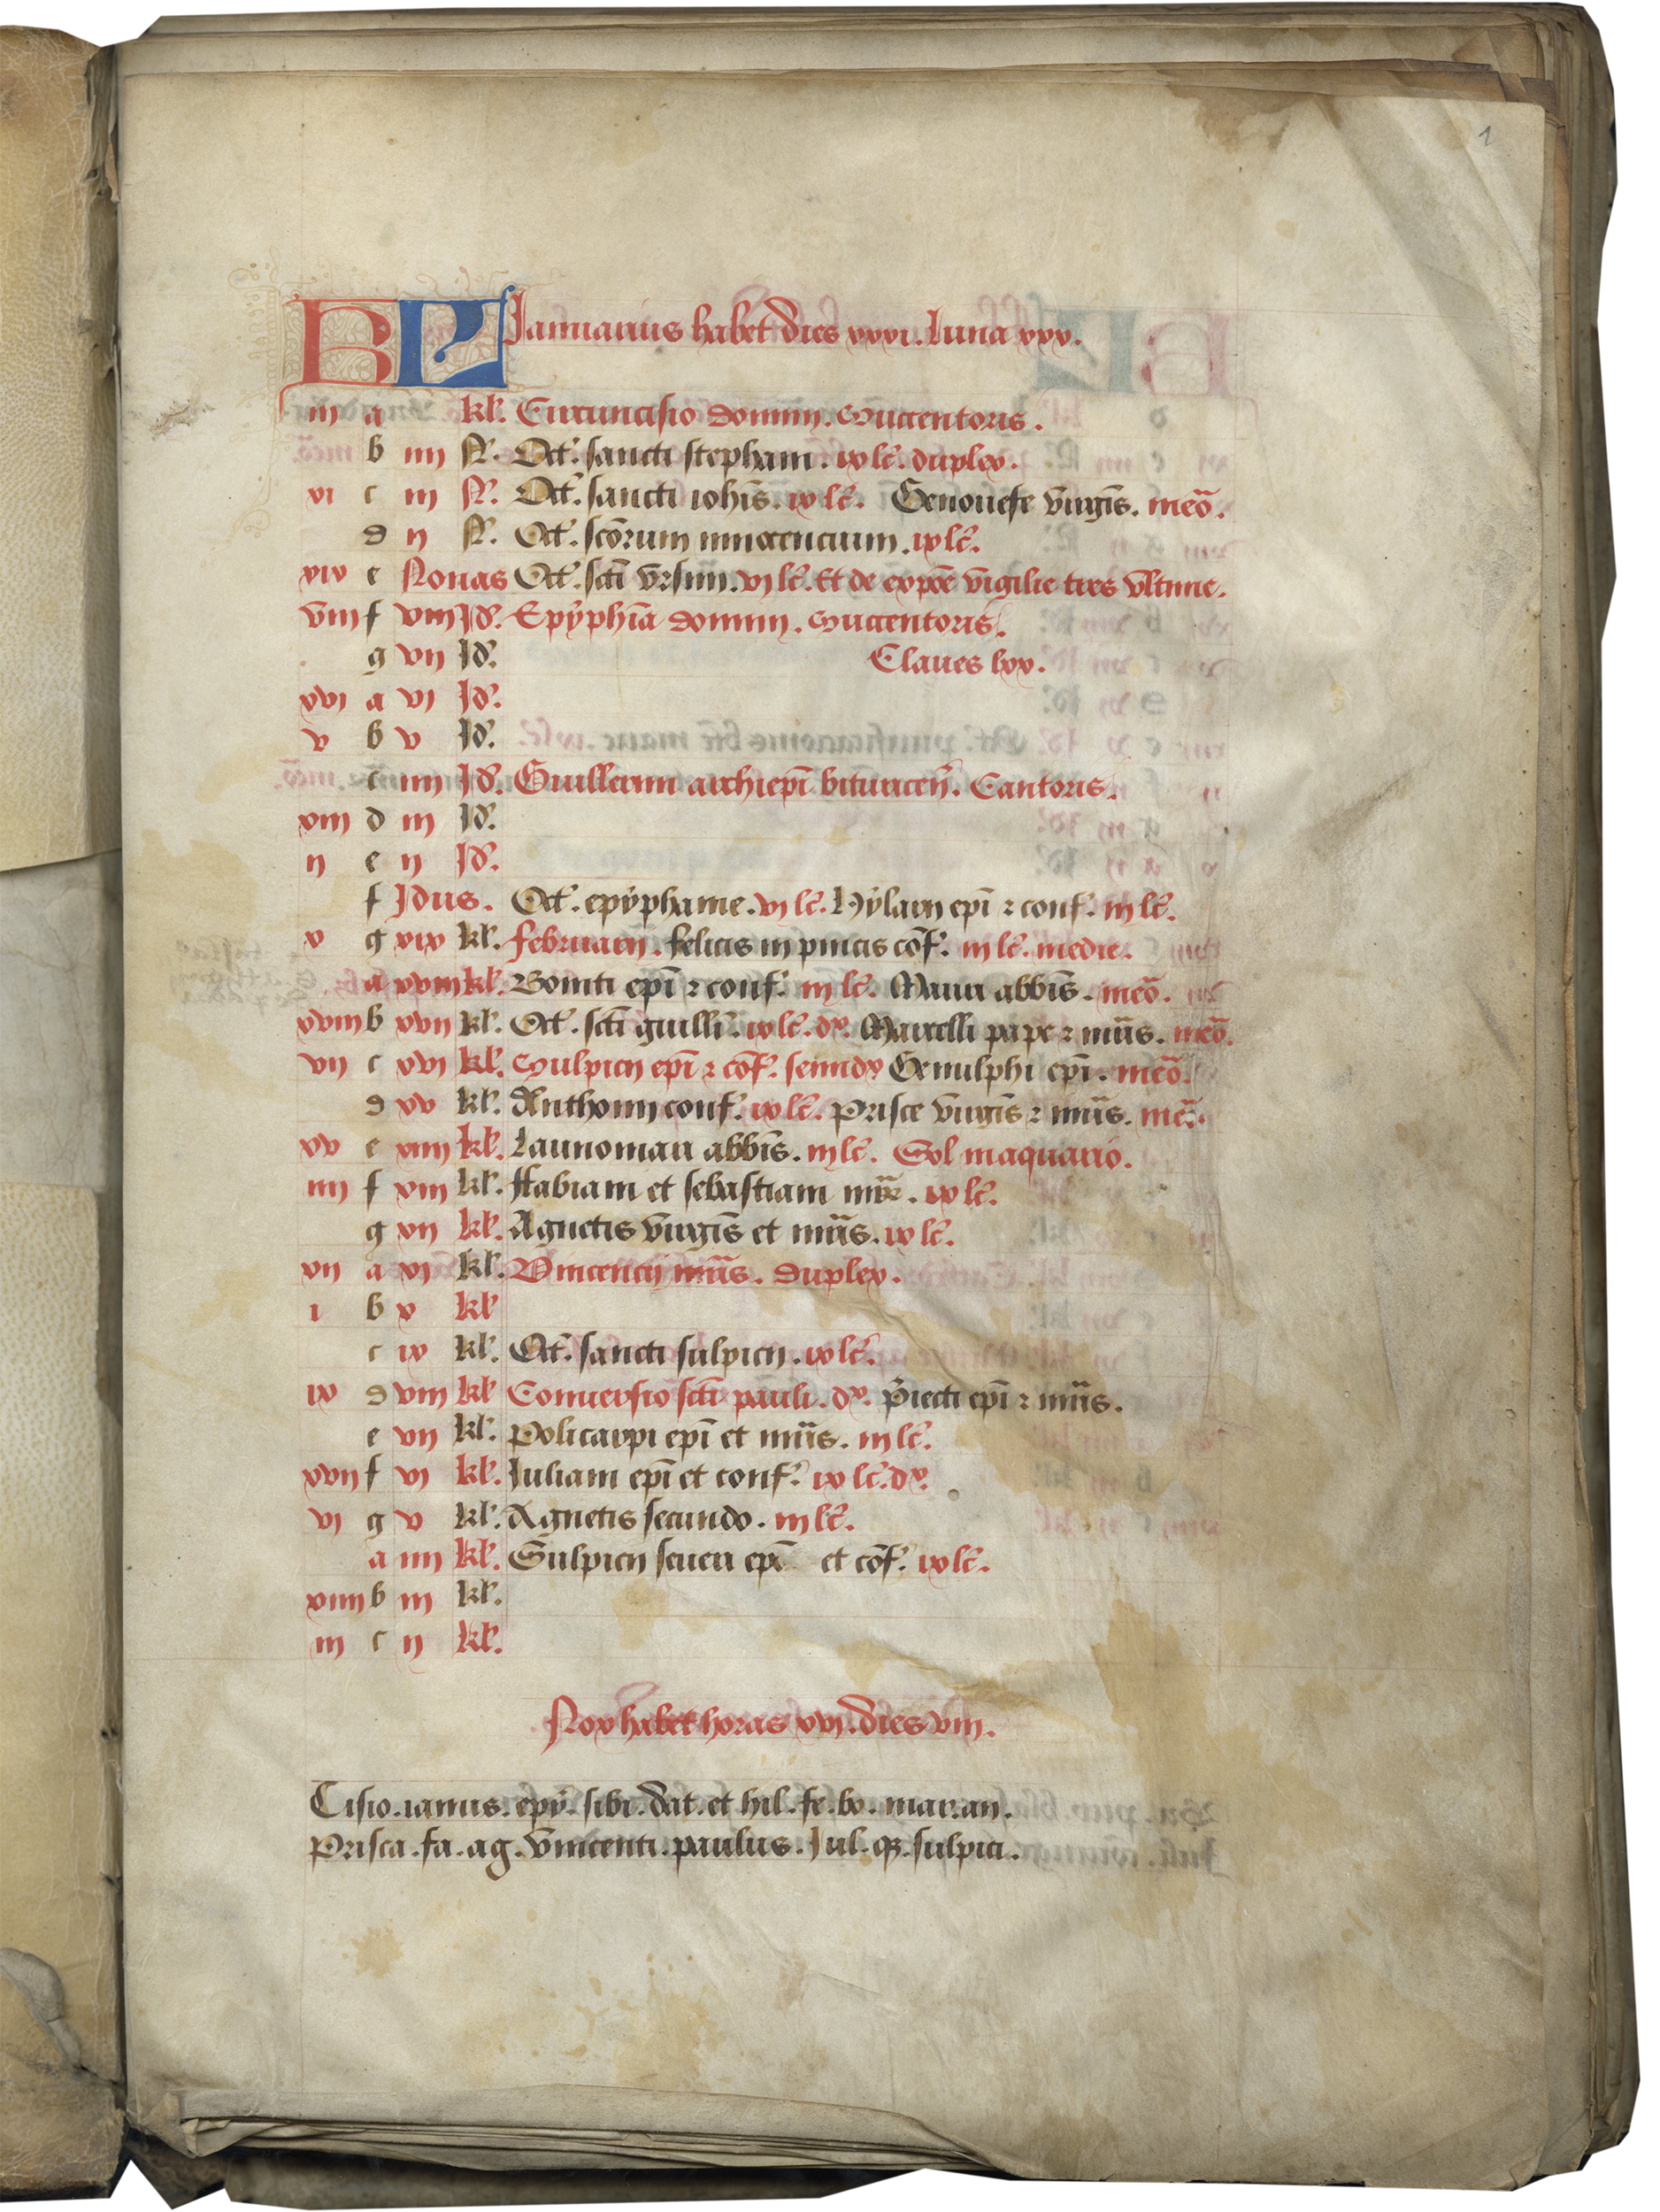 1
KL Januarius habet dies xxxi. Luna xxx.
iii a kl. Circuncisio domini. Succentoris.
b iiii N. Oct'. sancti stephani. ix lc̄. duplex.
xi c iii N. Oct'. sancti ioh̄is. ix lc̄. Genouefe v̄irgīs. meō.
d ii N. Oct'. scōrum innocencium. ix lc̄.
xix e Nonas Oct'. scti vrsini. vi lc̄. Et de expōe vigilie tres vltime.
viii f viii Id'. Epyphīa domini. Succentoris.
g vii Id'.
Claues lxx.
xvi a vi Id'.
v b v Id'.
c iiii Id'. Guillermi archiepī bituricen̄. Cantoris.
xiii d iii Id'.
ii e ii Id'.
f Idus. Oct'. epyphanie. vi lc̄. Hylarij epī ⁊ conf'. iii lc̄.
x g xix kl. februarij. felicis in pincis cōf'. iii lc̄. medie.
a xviii kl. Boniti epī ⁊ conf'. iii lc̄. Mauri abb̄is. meō.
xviii b xvii kl. Oct'. scti guill'i. ix lc̄. dx. Marcelli pape ⁊ mr̄is. meō.
vii c xvi kl. Sulpicij epī ⁊ cōf'. semidx Genulphi epī. meō.
d xv kl. Anthonij conf'. ix lc̄. Prisce v̄irgīs ⁊ mr̄is. mē.
xv e xiiii kl. Launomari abb̄is. iii lc̄. Sol in aquario.
iiii f xiii kl. ffabiani et sebastiani mr̄. ix lc̄.
g xii kl. Agnetis v̄irgīs et mr̄is. ix lc̄.
xii a xi kl. Vincencij mr̄is. duplex.
i b x kl
c ix kl. Oct'. sancti sulpicij. ix lc̄.
ix d viii kl Conuersio scti pauli. dx. p̄iecti epī ⁊ mr̄is.
e vii kl. Policarpi epī et mr̄is. iii lc̄.
xvii f vi kl. Iuliani epī et conf'. ix lc̄. dx.
vi g v kl. Agnetis secundo. iii lc̄.
a iiii kl. Sulpicij seueri epī et cōf'. ix lc̄.
xiiii b iii kl.
iii c ii kl.
Nox habet horas xvi. dies viii.
Cisio. ianus. epy. sibi. dat. et hil. fe. bo. mar. an.
Prisca. fa. ag. vincenti. paulus. Iul. qꝫ. sulpici.